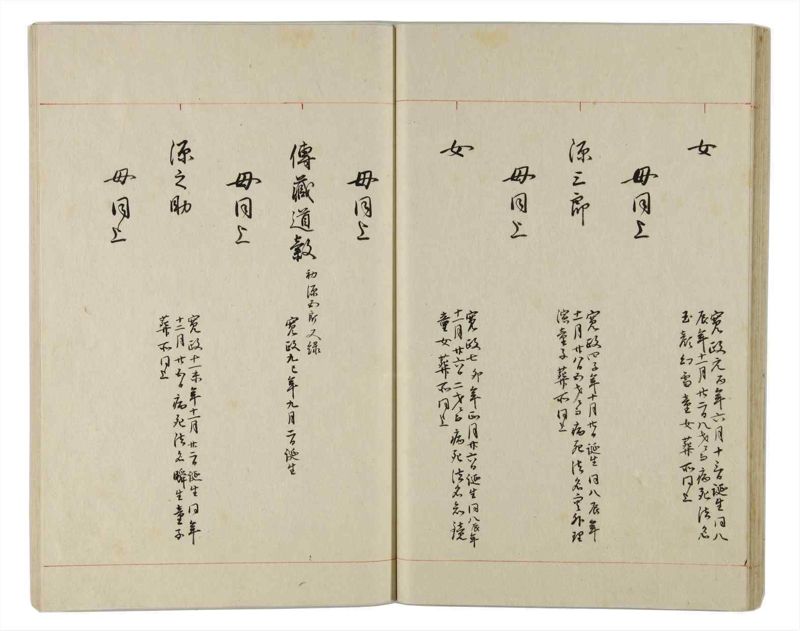 女
寛政元酉年六月十三日誕生同八
辰年十一月廿二日八才ニ而病死法名
玉顔幻雪童女葬所同上
母同上
源三郎
寛政四子年十月廿日誕生同八辰年
十一月廿八日五才ニ而病死法名
童子葬所同上
母同上
女
寛政七卯年正月廿六日誕生同八辰年
十一月廿六日二才ニ而病死法名
童女葬所同上
母同上
傳藏道毅
初源五郎又録
寛政九巳年九月二日誕生
母同上
源之助
寛政十一未年十一月廿二日誕生同年
十二月廿五日病死法名瞬生童子
葬所同上
母同上